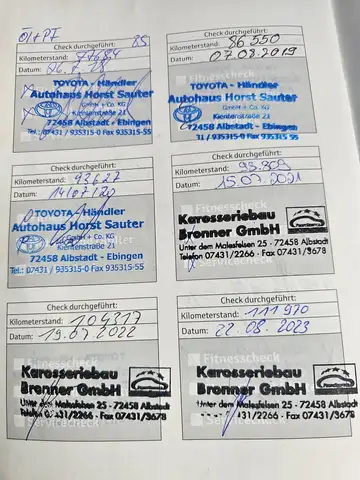 Öl + PF
Check durchgeführt: 85
Kilometerstand:
Datum:
TOYOTA - Händler
Autohaus Horst Sauter
GmbH + Co. KG
Kientenstraße 21
72458 Albstadt - Ebingen
Tel.: 07431 / 935315-0 Fax 935315-55
Check durchgeführt:
Kilometerstand: 86 550
Datum: 07.08.2019
Fitnesscheck
TOYOTA - Händler
Autohaus Horst Sauter
GmbH + Co. KG
Kientenstraße 21
72458 Albstadt - Ebingen
Tel.: 07431 / 935315-0 Fax 935315-55
Check durchgeführt:
Kilometerstand: 93627
Datum: 14.07.20
TOYOTA - Händler
Autohaus Horst Sauter
GmbH + Co. KG
Kientenstraße 21
72458 Albstadt - Ebingen
Tel.: 07431 / 935315-0 Fax 935315-55
Check durchgeführt:
Kilometerstand:
Datum: 15.09.2021
Karosseriebau
Bronner GmbH
Unter dem Malesfelsen 25 - 72458 Albstadt
Telefon 07431/2266 - Fax 07431/3678
Check durchgeführt:
Kilometerstand: 104317
Datum: 19.07.2022
Fitnesscheck
Karosseriebau
Bronner GmbH
Unter dem Malesfelsen 25 - 72458 Albstadt
Telefon 07431/2266 - Fax 07431/3678
Servicecheck
Check durchgeführt:
Kilometerstand: 111 970
Datum: 22.08.2023
Fitnesscheck
Karosseriebau
Bronner GmbH
Unter dem Malesfelsen 25 - 72458 Albstadt
07431/2266 - Fax 07431/3678
Servicecheck